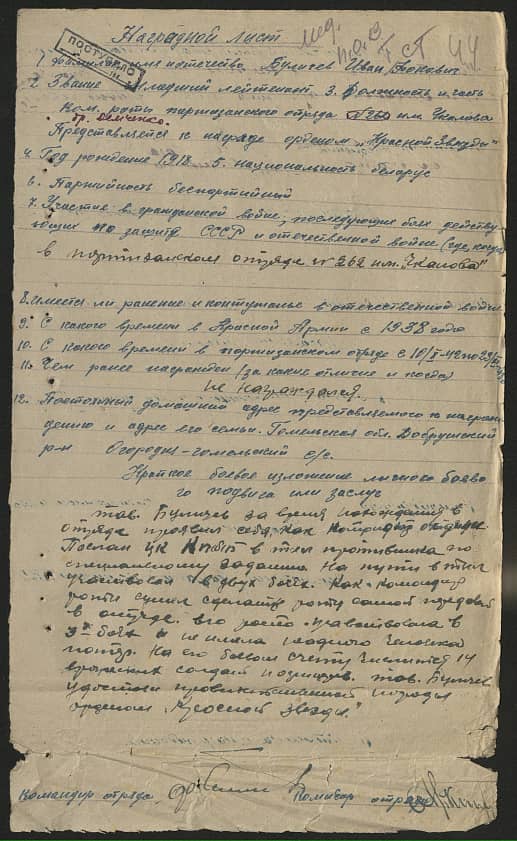 Наградной лист
мед.
44
ПОСТУПИЛО
1. Фамилия имя отечество Булычев Иван
2. Звание Младший лейтенант 3. Должность и часть
Ком. роты партизанского отряда №262 им. Чкалова
бр.
Представляется к награде орденом „Красной Звезды"
4. Год рождения 1918 5. национальность беларус
6. Партийность беспартийный
7. Участие в гражданской войне, последующих боях действу
ющих по защите СССР и отечественной войне (где, когда)
в партизанском отряде № 262 им. Чкалова"
8. Имеет ли ранение и контузилье в отечественной войне
9. С какого времени в Красной Армии с 1938 года
10. С какого времени в партизанском отряде с
11. Чем ранее награжден (за какие отличие и когда)
не награждался.
12. Постоянный домашний адрес представляемого к награж
дению и адрес его семьи. Гомельская обл. Добрушский
р-н Огородня-гомельский с/с.
Краткое боевое изложение личного боево
го подвига или заслуг
тов. Булычев за время нахождения в
отряде проявил себя как командир
Послан ЦК КП(б)Б в тыл противника по
специальному заданию. На пути в тыл
участвовал в двух боях. Как командир
роты сумел сделать роту самой передовой
в отряде. его рота участвовала в
боях и не имела ни одного человека
потерь. На его боевом счету числится 14
вражеских солдат и офицеров. тов. Булычев
удостоен правительственной награды
орденом „Красной Звезды."
Командир отряда
Комисар отряда